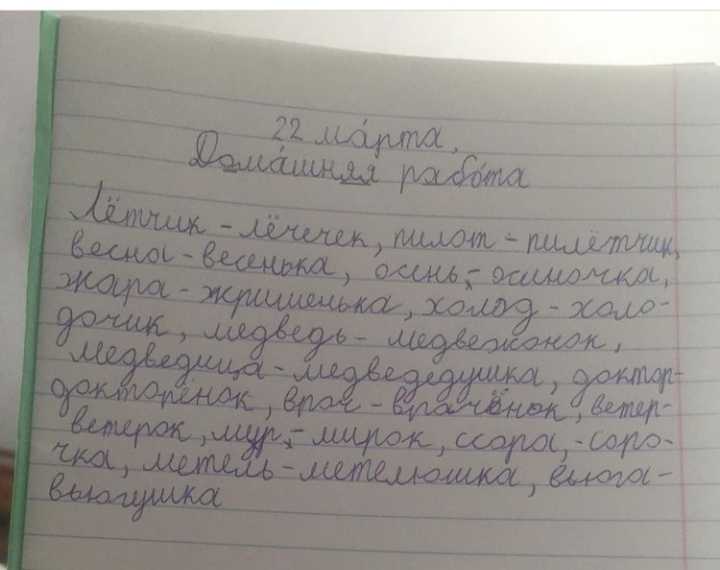 22 ма́рта.
Дома́шняя рабо́та
Лётчик - лёчечек, пилот - пилётчик,
весна - весенька, осень - осиночка,
жара - жришенька, холод - холо-
дочик, медведь - медвежонок,
медведица - медведедушка, доктор -
докторёнок, врач - врачёнок, ветер -
ветерок, мур, - мирок, ссора, - соро-
чка, метель - метелюшка, вьюга -
вьюгушка